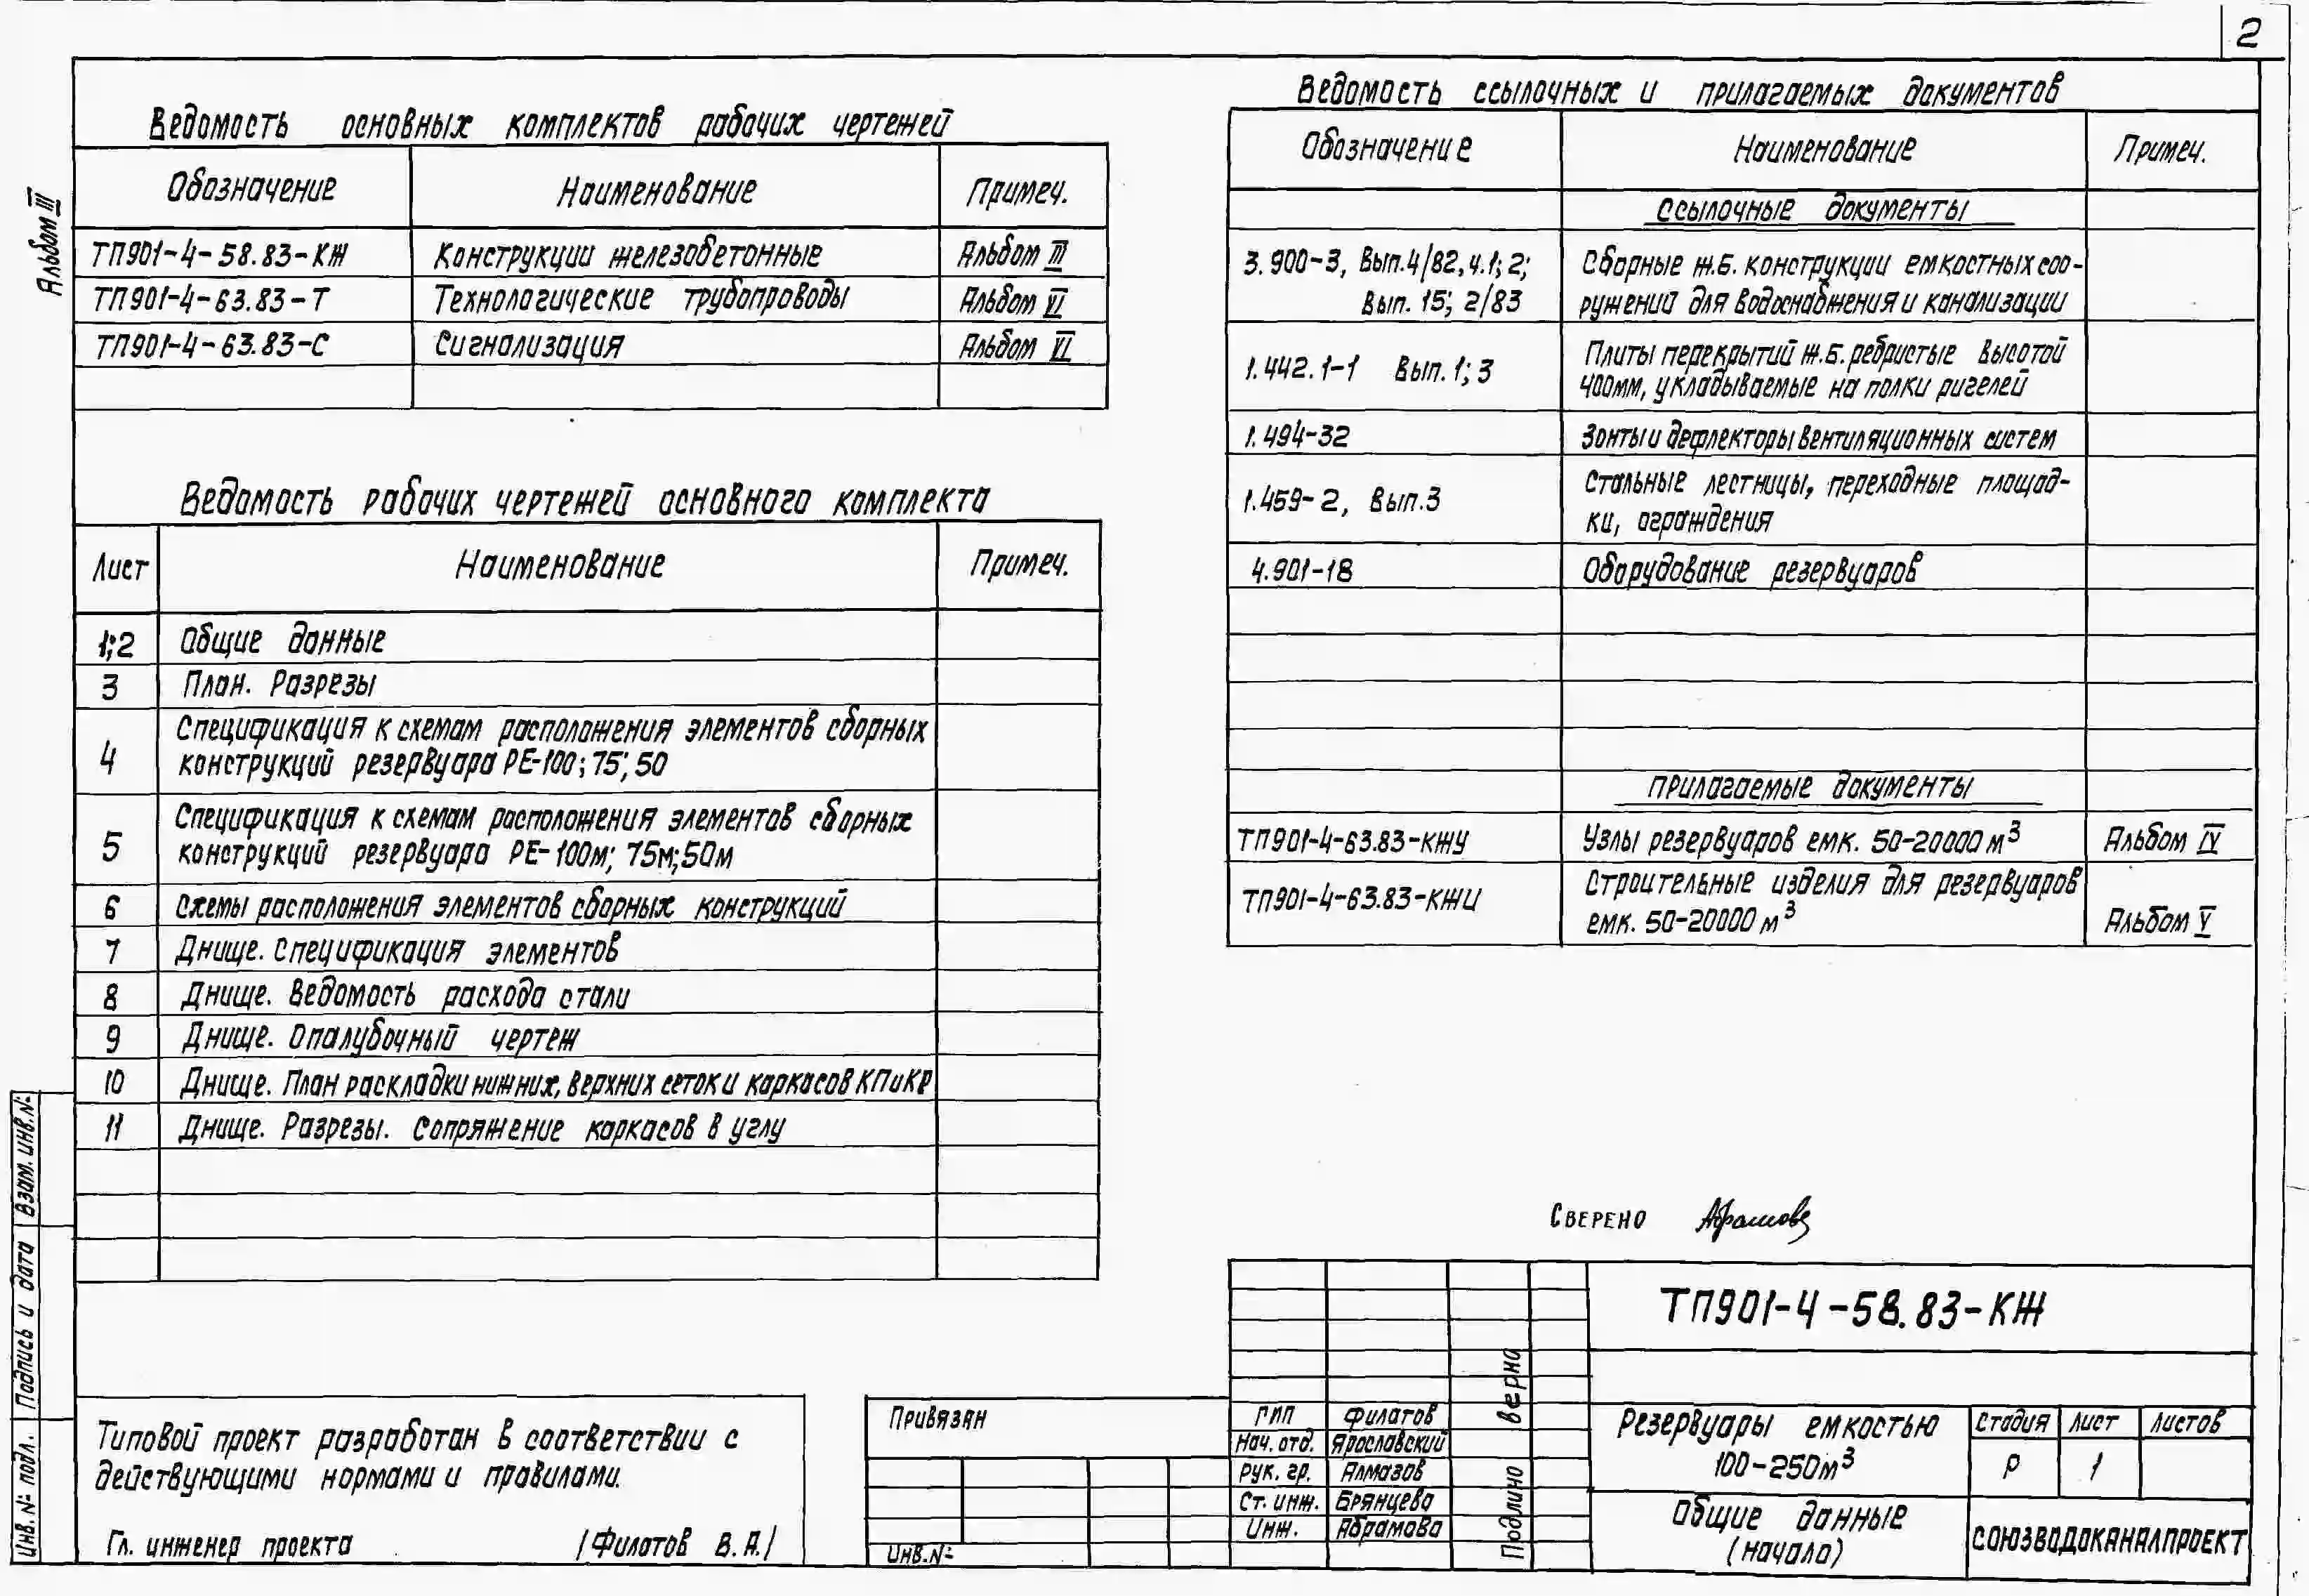 2
Альбом III
Ведомость основных комплектов рабочих чертежей
Обозначение Наименование Примеч.
ТП901-4-58.83-КЖ Конструкции железобетонные Альбом III
ТП901-4-63.83-Т Технологические трубопроводы Альбом VI
ТП901-4-63.83-С Сигнализация Альбом VI
Ведомость рабочих чертежей основного комплекта
Лист Наименование Примеч.
1;2 Общие данные
3 План. Разрезы
4 Спецификация к схемам расположения элементов сборных
конструкций резервуара РЕ-100; 75; 50
5 Спецификация к схемам расположения элементов сборных
конструкций резервуара РЕ-100м; 75м; 50м
6 Схемы расположения элементов сборных конструкций
7 Днище. Спецификация элементов
8 Днище. Ведомость расхода стали
9 Днище. Опалубочный чертеж
10 Днище. План раскладки нижних, верхних сеток и каркасов КП и КР
11 Днище. Разрезы. Сопряжение каркасов в углу
Ведомость ссылочных и прилагаемых документов
Обозначение Наименование Примеч.
Ссылочные документы
3.900-3, Вып.4/82, ч.1; 2; Сборные ж.б. конструкции емкостных соо-
Вып. 15; 2/83 ружений для водоснабжения и канализации
1.442.1-1 Вып. 1; 3 Плиты перекрытий ж.б. ребристые высотой
400мм, укладываемые на полки ригелей
1.494-32 Зонты и дефлекторы вентиляционных систем
1.459-2, Вып.3 Стальные лестницы, переходные площад-
ки, ограждения
4.901-18 Оборудование резервуаров
Прилагаемые документы
ТП901-4-63.83-КЖУ Узлы резервуаров емк. 50-20000 м³ Альбом IV
ТП901-4-63.83-КЖИ Строительные изделия для резервуаров
емк. 50-20000 м³ Альбом V
Сверено Абрамова
Типовой проект разработан в соответствии с
действующими нормами и правилами.
Гл. инженер проекта /Филатов В.А./
Инв.№ подл. Подпись и дата Взам.инв.№
Привязан
Инв.№
ГИП Филатов
Нач. отд. Ярославский
Рук. гр. Алмазов
Ст. инж. Брянцева
Инж. Абрамова
Подлино верна
ТП901-4-58.83-КЖ
Резервуары емкостью
100-250м³
Стадия Лист Листов
Р 1
Общие данные
(начало)
СОЮЗВОДОКАНАЛПРОЕКТ